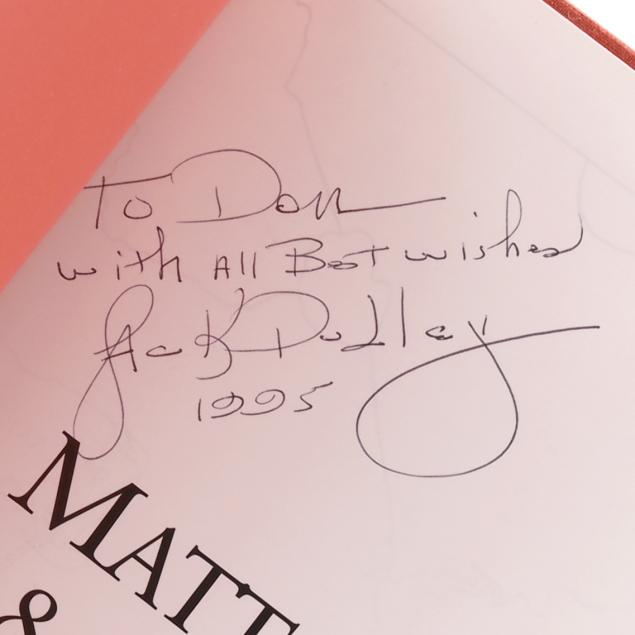 To Don
with All Best wishes
Jack Dudley
1995
MATT
&